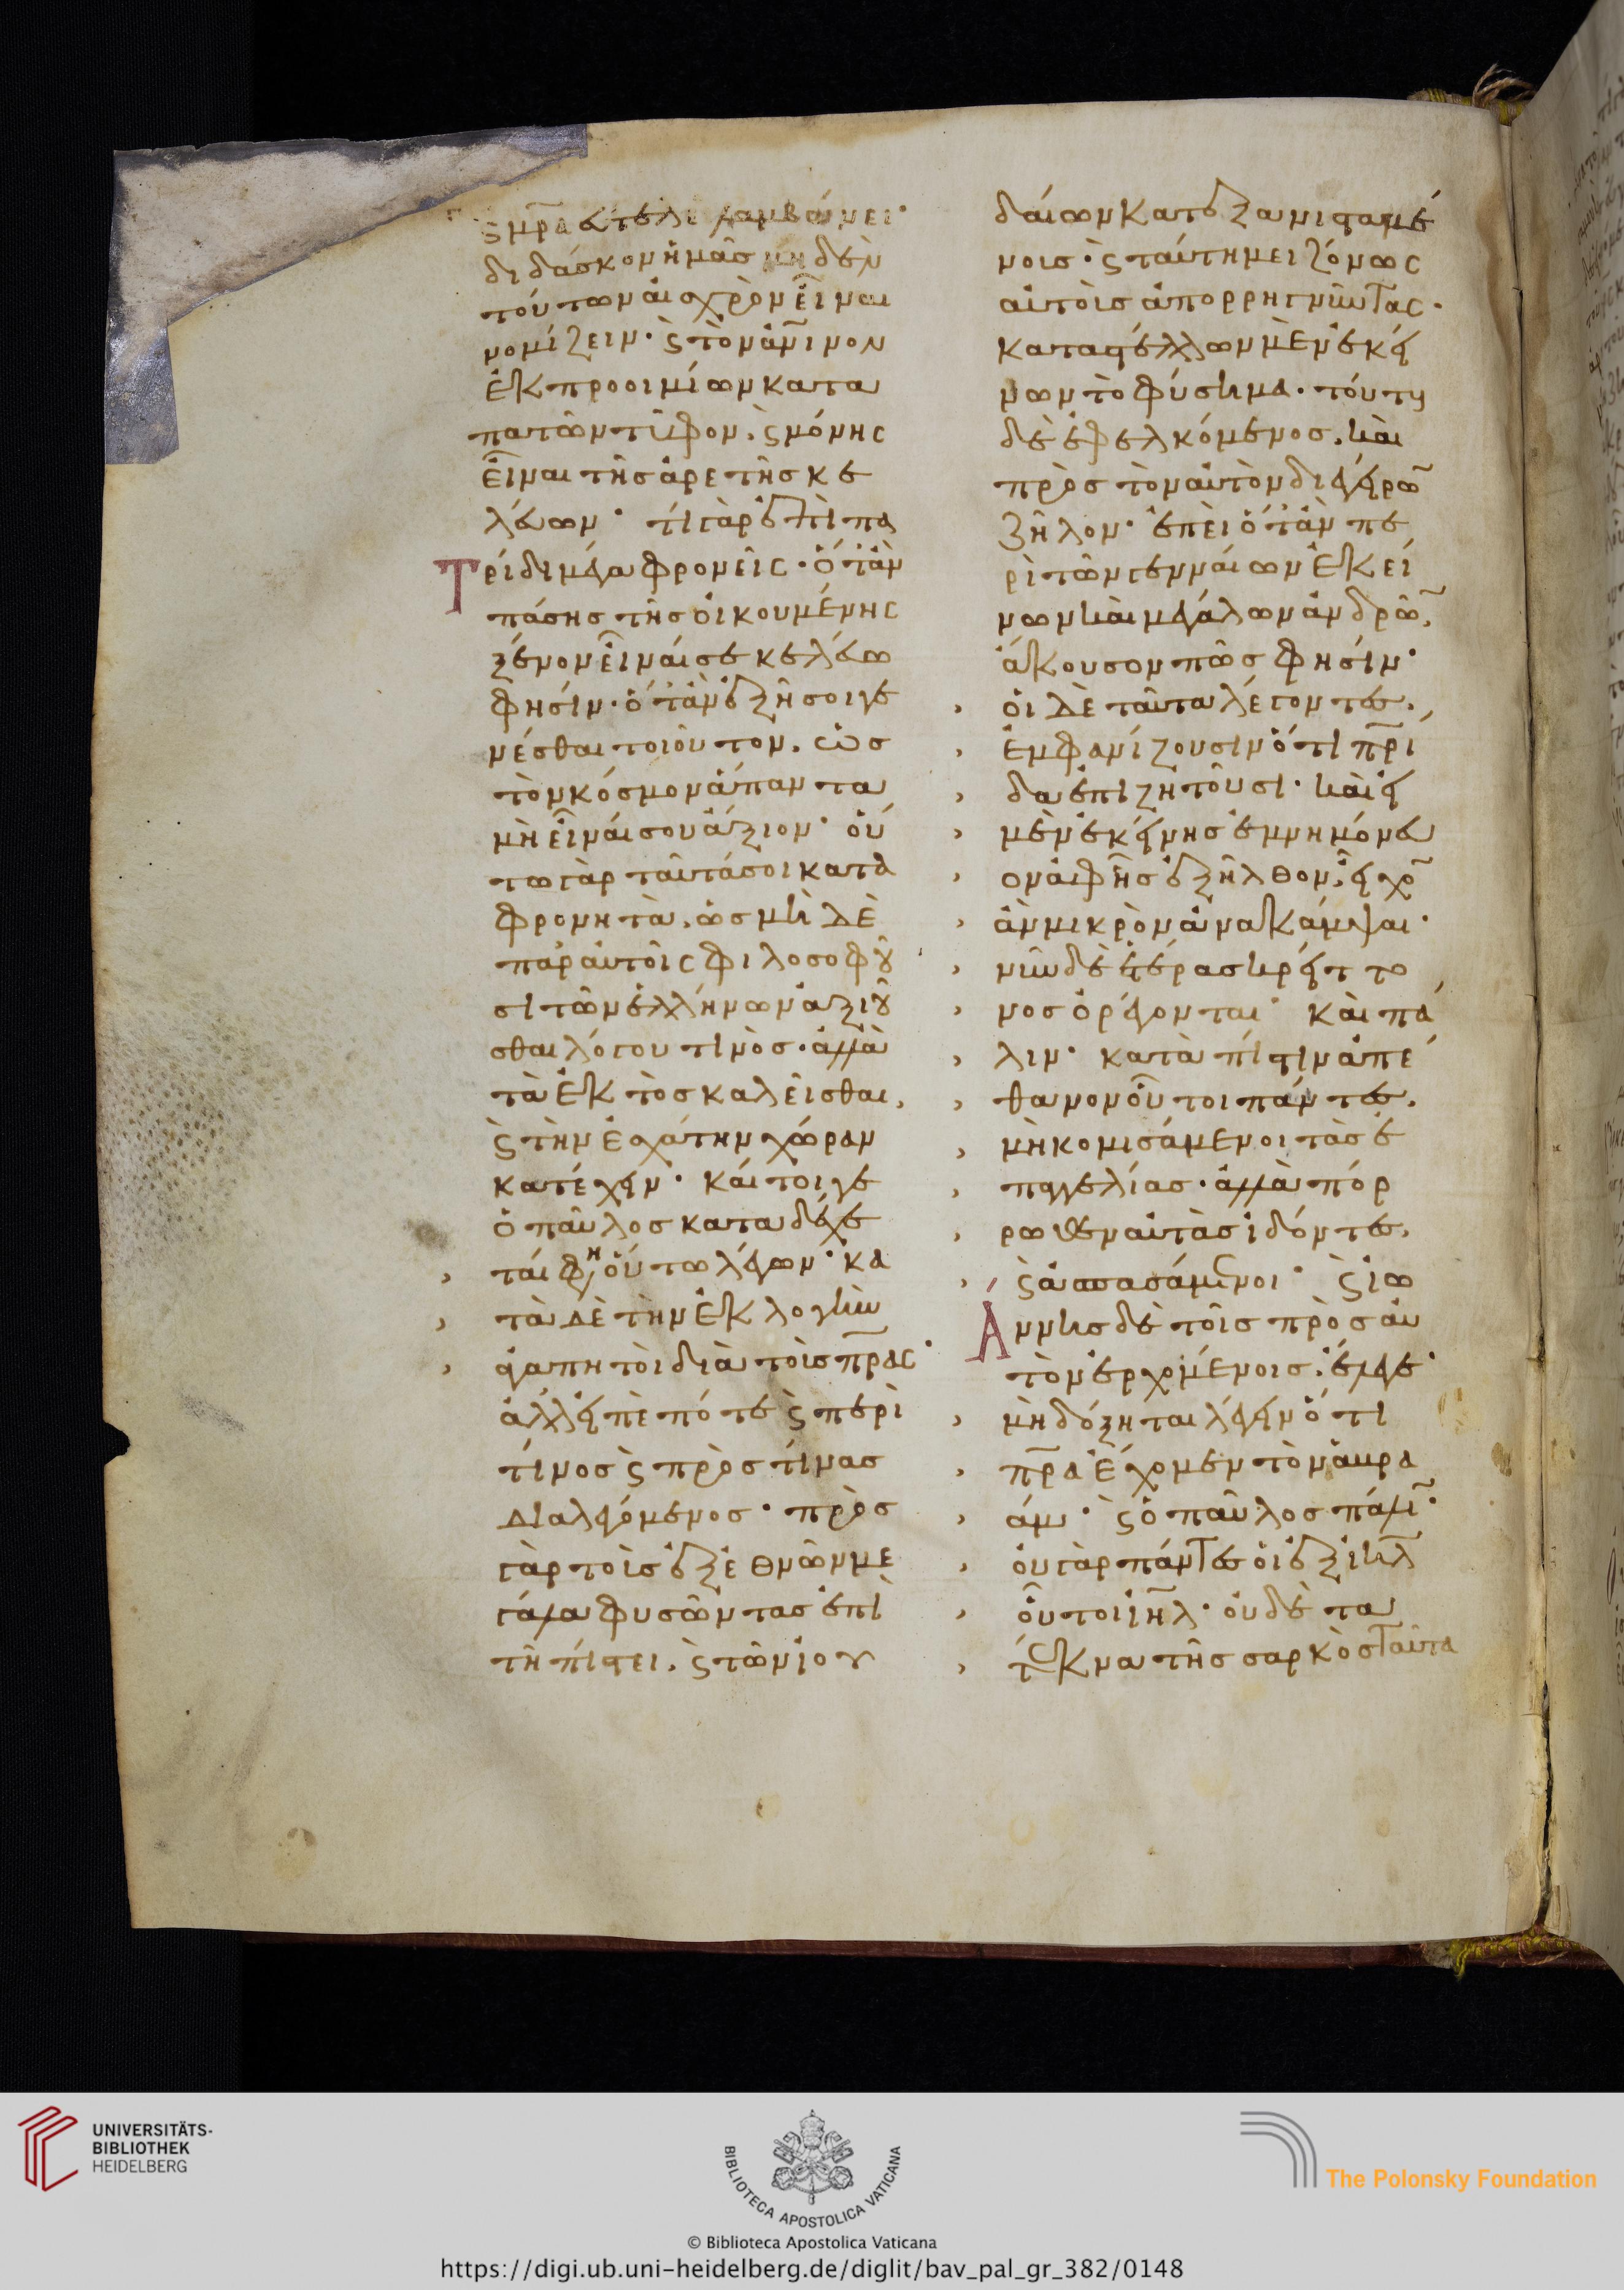 ϛ μρ̅α ἐυτελῆ λαμβάνει·
διδάσκων ἡμᾶς μηδὲν
τούτων αἰσχρὸν εἶναι
νομίζειν· ϛ τὸν ἀν̅ινον
ἐκ προοιμίων κατα
πατῶν τῦφον, ϛ μόνης
εἶναι τῆς ἀρετῆς κε
λεύων· τί γὰρ ἐπὶ πα
τρίδι μέγα φρονεῖς· ὅτ᾽ἂν
πάσης τῆς οἰκουμένης
ξένον εἶναί σε κελεύω
φησίν· ὅτ᾽ἂν ἐξῆ σοι γε
νέσθαι τοιοῦτον, ὡς
τὸν κόσμον ἅπαντα
μὴ εἶναί σου ἄξιον· οὕ
τω γὰρ ταῦτά σοι κατα
φρονητὰ, ὡς μὴ δὲ
παρ αὐτοῖς φιλοσοφοῦ
σι τῶν ἑλλήνων ἀξιοῦ
σθαι λόγου τινὸς· ἀλλὰ
τὰ ἐκτὸς καλεῖσθαι,
ϛ τὴν ἐσχάτην χώραν
κατέχειν· καίτοι γε
ὁ παῦλος καταδέχε
ται φη οὕτω λέγων· κα
τὰ δὲ τὴν ἐκλογὴν
ἀγαπητοὶ διὰ τοὺς πρ̅ας·
ἀλλ᾽ εἰπὲ πότε ϛ περὶ
τίνος ϛ πρὸς τίνας
διαλεγόμενος· πρὸς
γὰρ τοὺς ἐξ ἐθνῶν με
γάλα φυσῶντας ἐπὶ
τῆ πίστει, ϛ τῶν ἰου
δαίων κατεξανισταμέ
νοις· ϛ ταύτη μειζόνως
αὐτοὺς ἀπορρηγνῦντας·
καταστέλλων μὲν ἐκεί
νων τὸ φύσημα· τούτους
δὲ ἐφελκόμενος, καὶ
πρὸς τὸν αὐτὸν διεγείρων
ζῆλον· ἐπεὶ ὅτ᾽ἂν πε
ρὶ τῶν γενναίων ἐκεί
νων καὶ μεγάλων ἀνδρῶν,
ἄκουσον πῶς φησίν·
οἱ δὲ ταῦτα λέγοντες,
ἐμφανίζουσιν ὅτι πρ̅ι
δα ἐπιζητοῦσι· καὶ εἰ
μὲν ἐκείνης ἐμνημόνευ
ον ἀφ᾽ ἧς ἐξῆλθον, εἶχον
ἂν μικρὸν ἀνακάμψαι·
νῦν δὲ ἑτέρας κρείττο
νος ὀρέγονται· καὶ πά
λιν· κατὰ πίστιν ἀπέ
θανον οὗτοι πάντες,
μὴ κομισάμενοι τὰς ἐ
παγγελίας· ἀλλὰ πόρ
ρωθεν αὐτὰς ἰδόντες,
ϛ ἀσπασάμενοι· ϛ ἰω
άννης δὲ τοῖς πρὸς αὐ
τὸν ἐρχομένοις, ἔλεγε·
μὴ δόξηται λέγειν ὅτι
πρ̅α ἔχομεν τὸν ἀβρα
άμ· ϛ ὁ παῦλος πάλιν·
οὐ γὰρ πάντες οἱ ἐξ ιη̅λ
οὗτοι ιη̅λ· οὐδὲ τὰ
τέκνα τῆς σαρκὸς ταῦτα
UNIVERSITÄTS-
BIBLIOTHEK
HEIDELBERG
BIBLIOTECA APOSTOLICA VATICANA
The Polonsky Foundation
© Biblioteca Apostolica Vaticana
https://digi.ub.uni-heidelberg.de/diglit/bav_pal_gr_382/0148